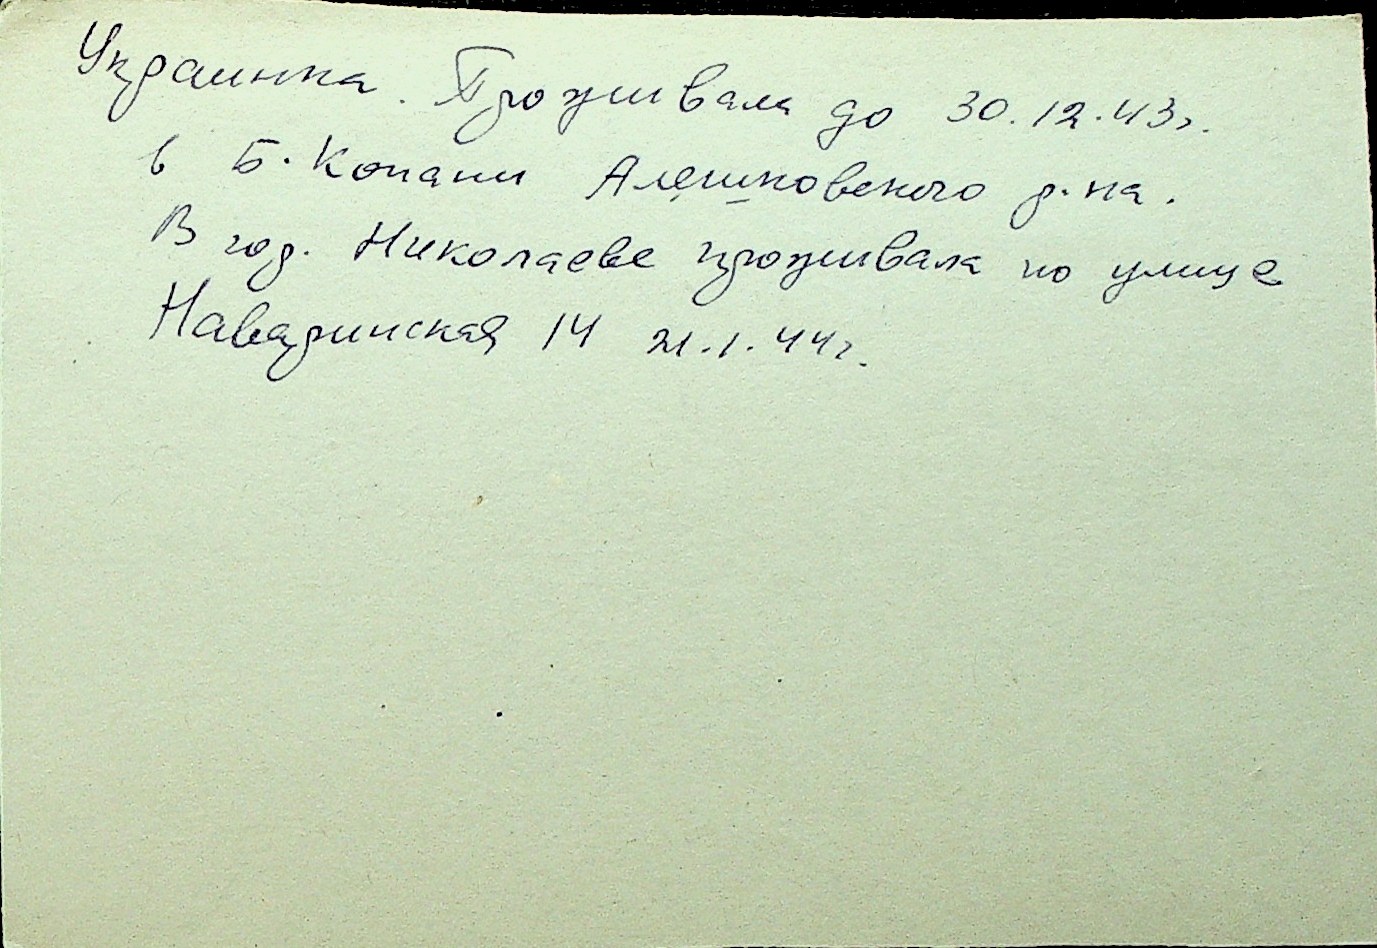 Украинка. Проживала до 30.12.43г.
в Б. Копани Алешковского р-на.
В гор. Николаеве проживала по улице
Наваринская 14 21.1.44г.